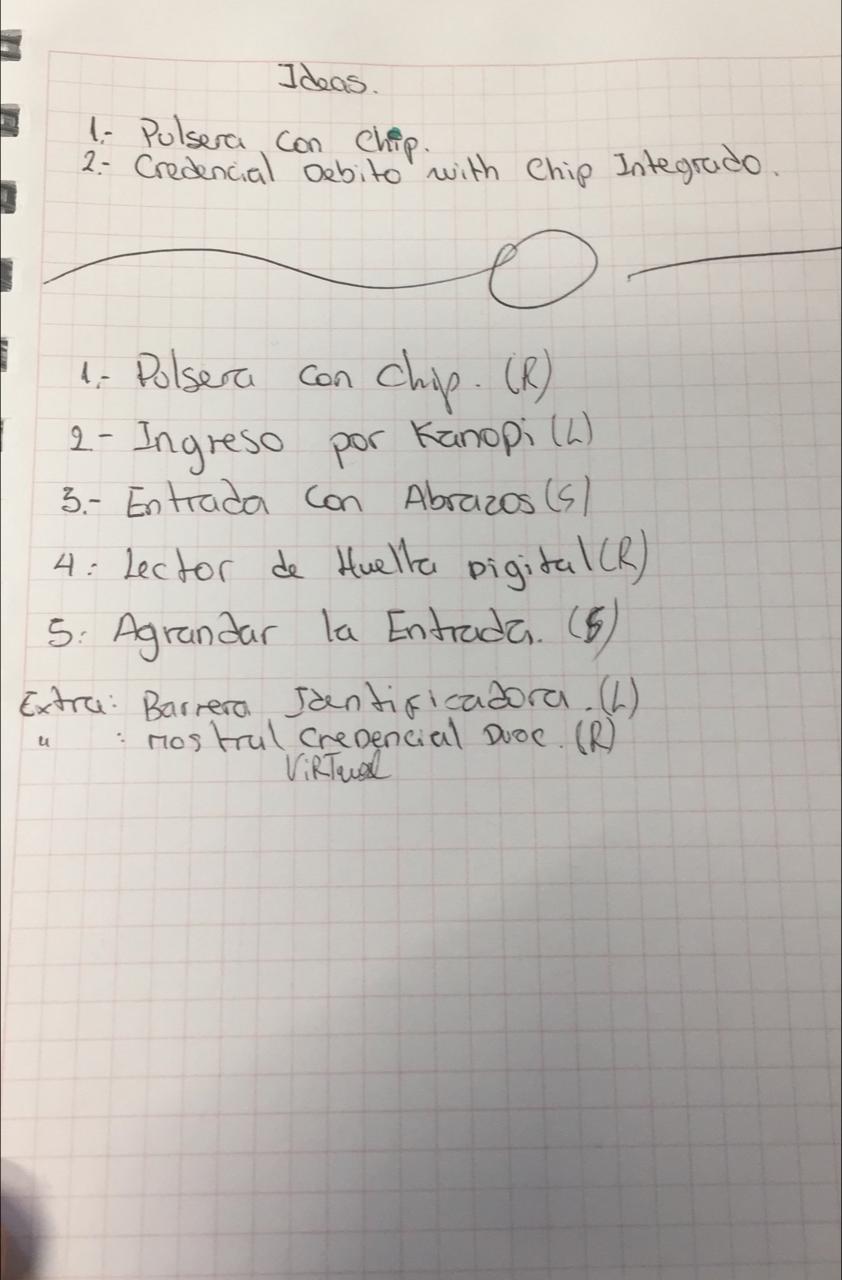 Ideas.
1.- Pulsera con Chip.
2.- Credencial Debito with Chip Integrado.
1.- Pulsera con Chip. (R)
2- Ingreso por Kanopi (L)
3.- Entrada con Abrazos (S)
4: Lector de Huella Digital (R)
5: Agrandar la Entrada. (S)
Extra: Barrera Identificadora. (L)
" : mostral Credencial Duoc. (R)
Virtual